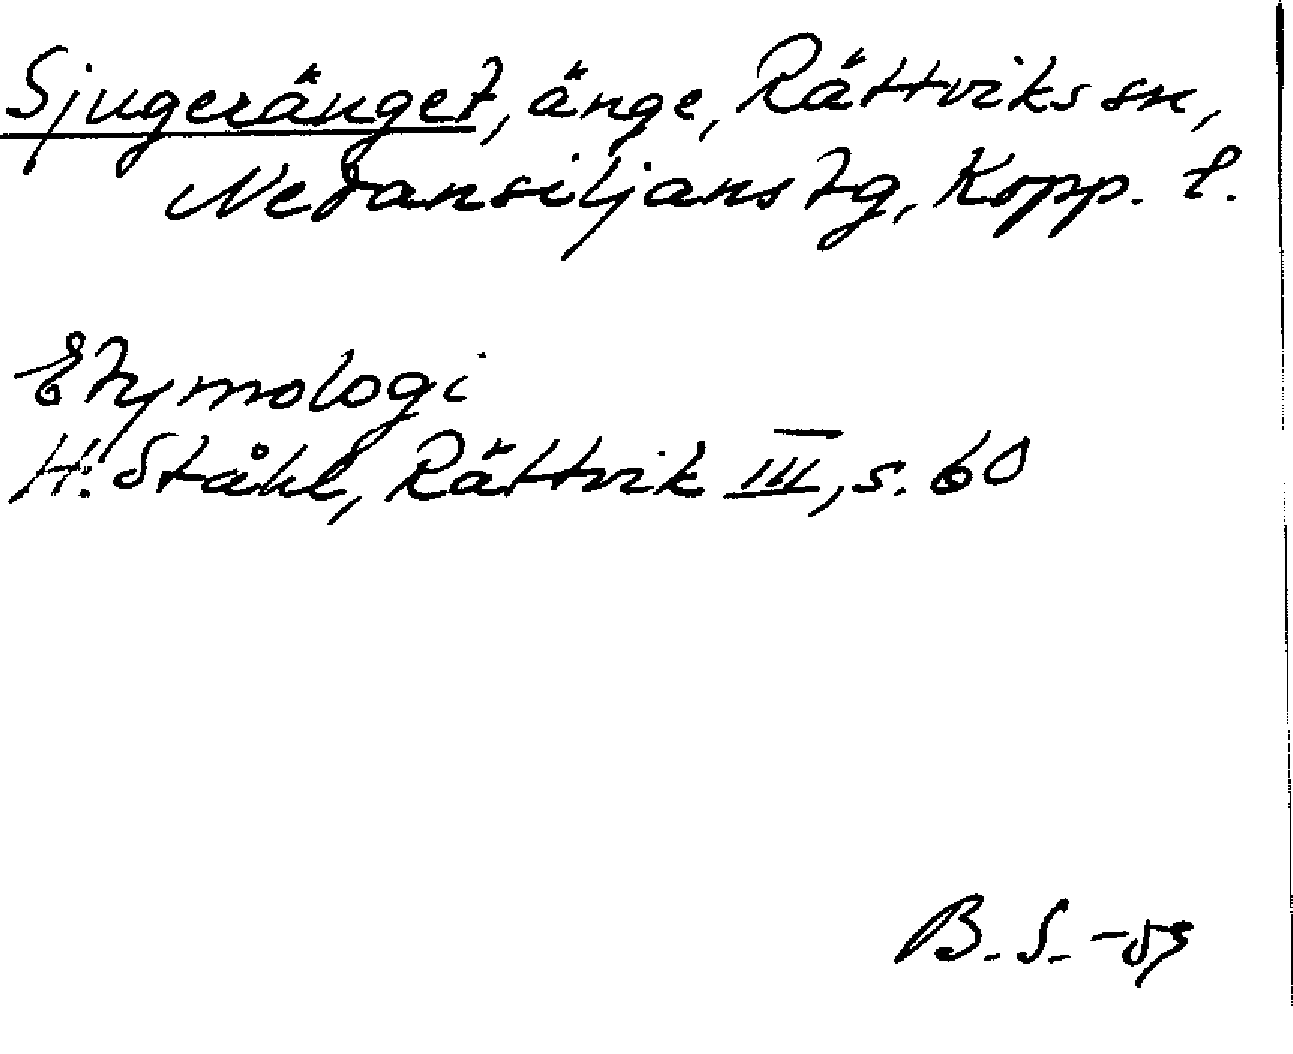 Sjugeränget, änge, Rättviks sn,
Nedansiljans tg, Kopp. l.
Etymologi
H. Ståhl, Rättvik III, s. 60
B. S. -